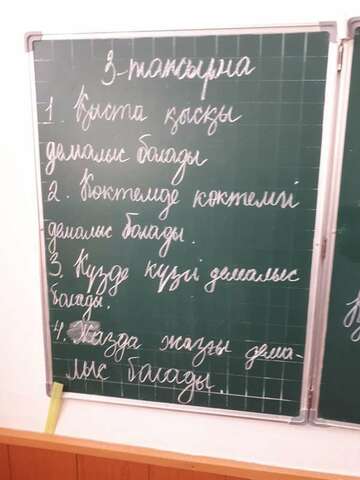 3-тапсырма
1. Қыста қысқы
демалыс болады
2. Көктемде көктемгі
демалыс болады.
3. Күзде күзгі демалыс
болады.
4. Жазда жазғы дема-
лыс болады.